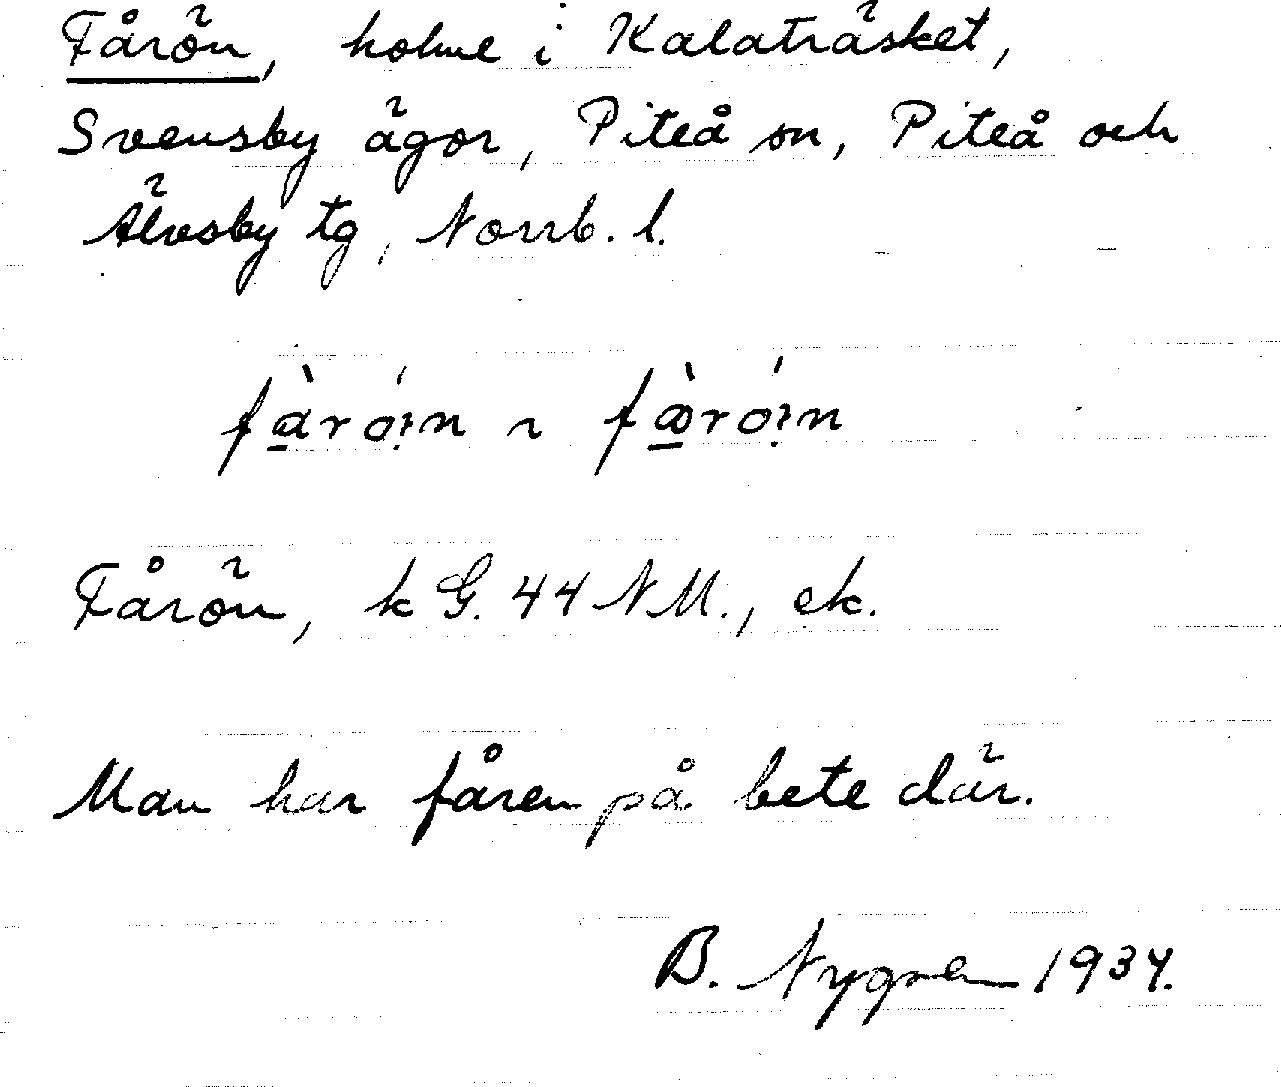 Fårön, holme i Kalaträsket,
Svensby ägor, Piteå sn, Piteå och
Älvsby tg, Norrb. l.
fàróịn ~ fæ̀róịn
Fårön, k G. 44 NM., ek.
Man har fåren på bete där.
B. Nygren 1934.